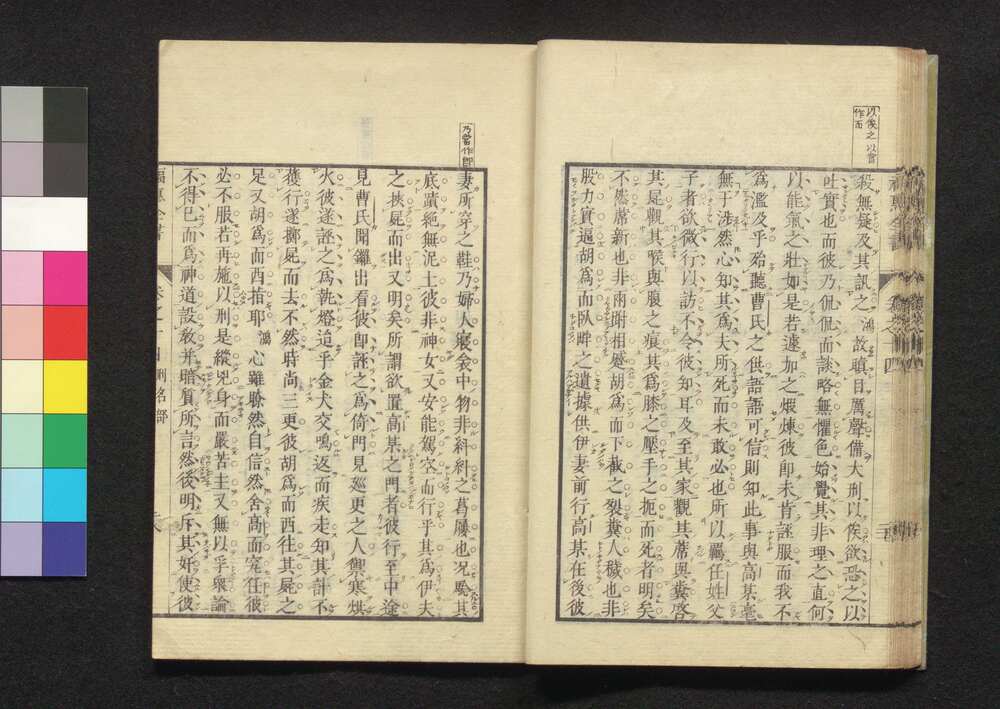 以俟之以當
作而
殺無疑及其訊之鴻故瞋目厲聲備大刑以俟欲恐之以
吐實也而彼乃侃侃而談略無懼色始覺其非理之直何
以能氣之壯如是若遽加之煆煉彼即未肯誣服而我不
爲濫及乎殆聽曹氏之供語語可信則知此事與高某毫
無于涉然心知其爲夫所死而未敢必也所以羈任姓父
子者欲微行以訪不令彼知耳及至其家觀其蓆與糞啓
其屍觀其喉與腹之痕其爲膝之壓手之扼而死者明矣
不然蓆新也非兩跗相蹙胡爲而下截之裂糞人穢也非
股力實逼胡爲而臥畔之遺據供伊妻前行高某在後彼
乃當作即
妻所穿之鞋乃婦人寢衾中物非糾糾之葛屨也况驗其
底濆絶無泥土彼非神女又安能駕空而行乎其爲伊夫
之挾屍而出又明矣所謂欲置高某之門者彼行至中途
見曹氏開鑼出看彼即誣之爲倚門見廵更之人禦寒烘
火彼遂誣之爲執燈迨乎金犬交鳴返而疾走知其計不
獲行遂擲屍而去不然時尚三更彼胡爲而西往其屍之
足又胡爲而西指耶鴻心雖聆然自信然舍高而究任彼
必不服若再施以刑是縱兇身而嚴苦主又無以孚衆論
不得已而爲神道設教并暗質所言然後明斥其奸使彼
福惠全書 卷之十四 刑名部